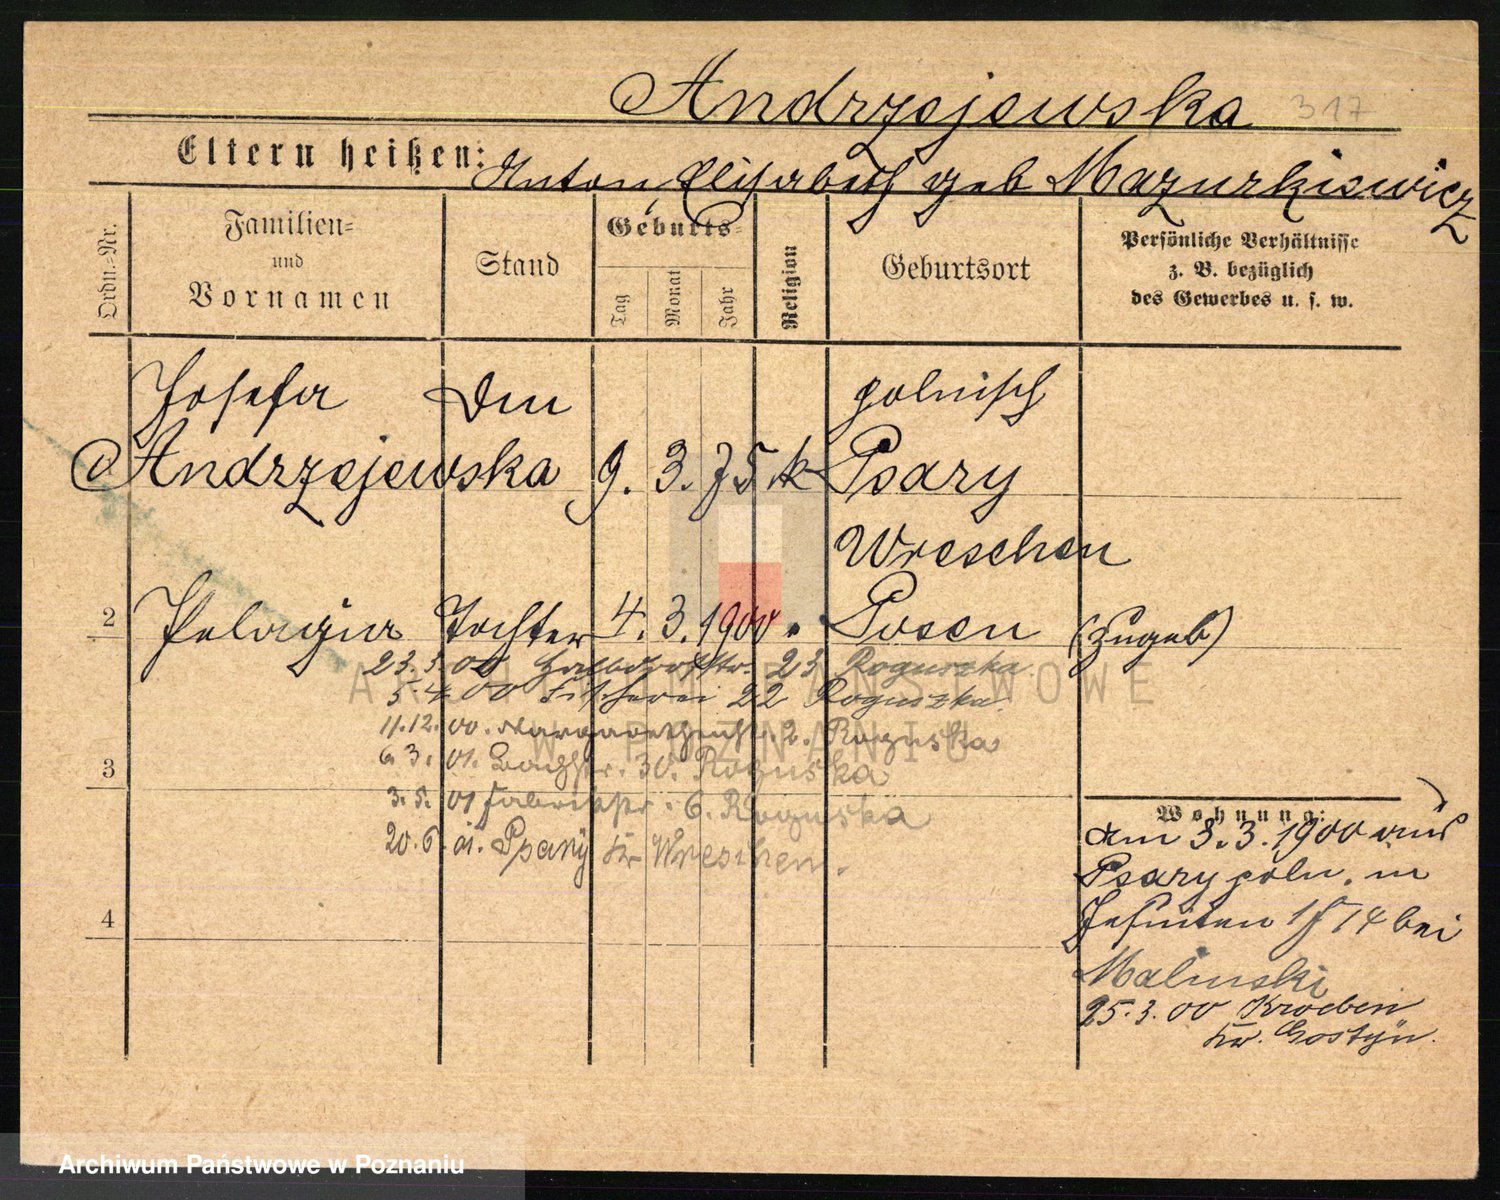 Andrzejewska 317
Eltern heißen: Anton, Elisabeth geb Mazurkiewicz
Ordn.-Nr.
Familien-
und
Vornamen
Stand
Geburts-
Tag
Monat
Jahr
Religion
Geburtsort
Persönliche Verhältnisse
z. B. bezüglich
des Gewerbes u. s. w.
Josefa polnisch
Andrzejewska 9. 3. 75 k Psary
Wreschen
2 Pelagia Tochter 4. 3. 1900 Posen (zugeb)
23.3.00 Halbdorfstr. 23 Roguszka
5.4.00 Fischerei 22 Roguszka
11.12.00. 2. Roguska
6.3.01. 30. Roguska
3
3.5.01 Fabrikstr. 6. Roguska
20.6.01. Psary Kr Wreschen.
4
Wohnung:
am 3.3.1900 aus
Psary poln. in
Jesuiten 14 bei
Malinski
25.3.00 Kroeben
Kr. Gostyn.
ARCHIWUM PAŃSTWOWE
W POZNANIU
Archiwum Państwowe w Poznaniu